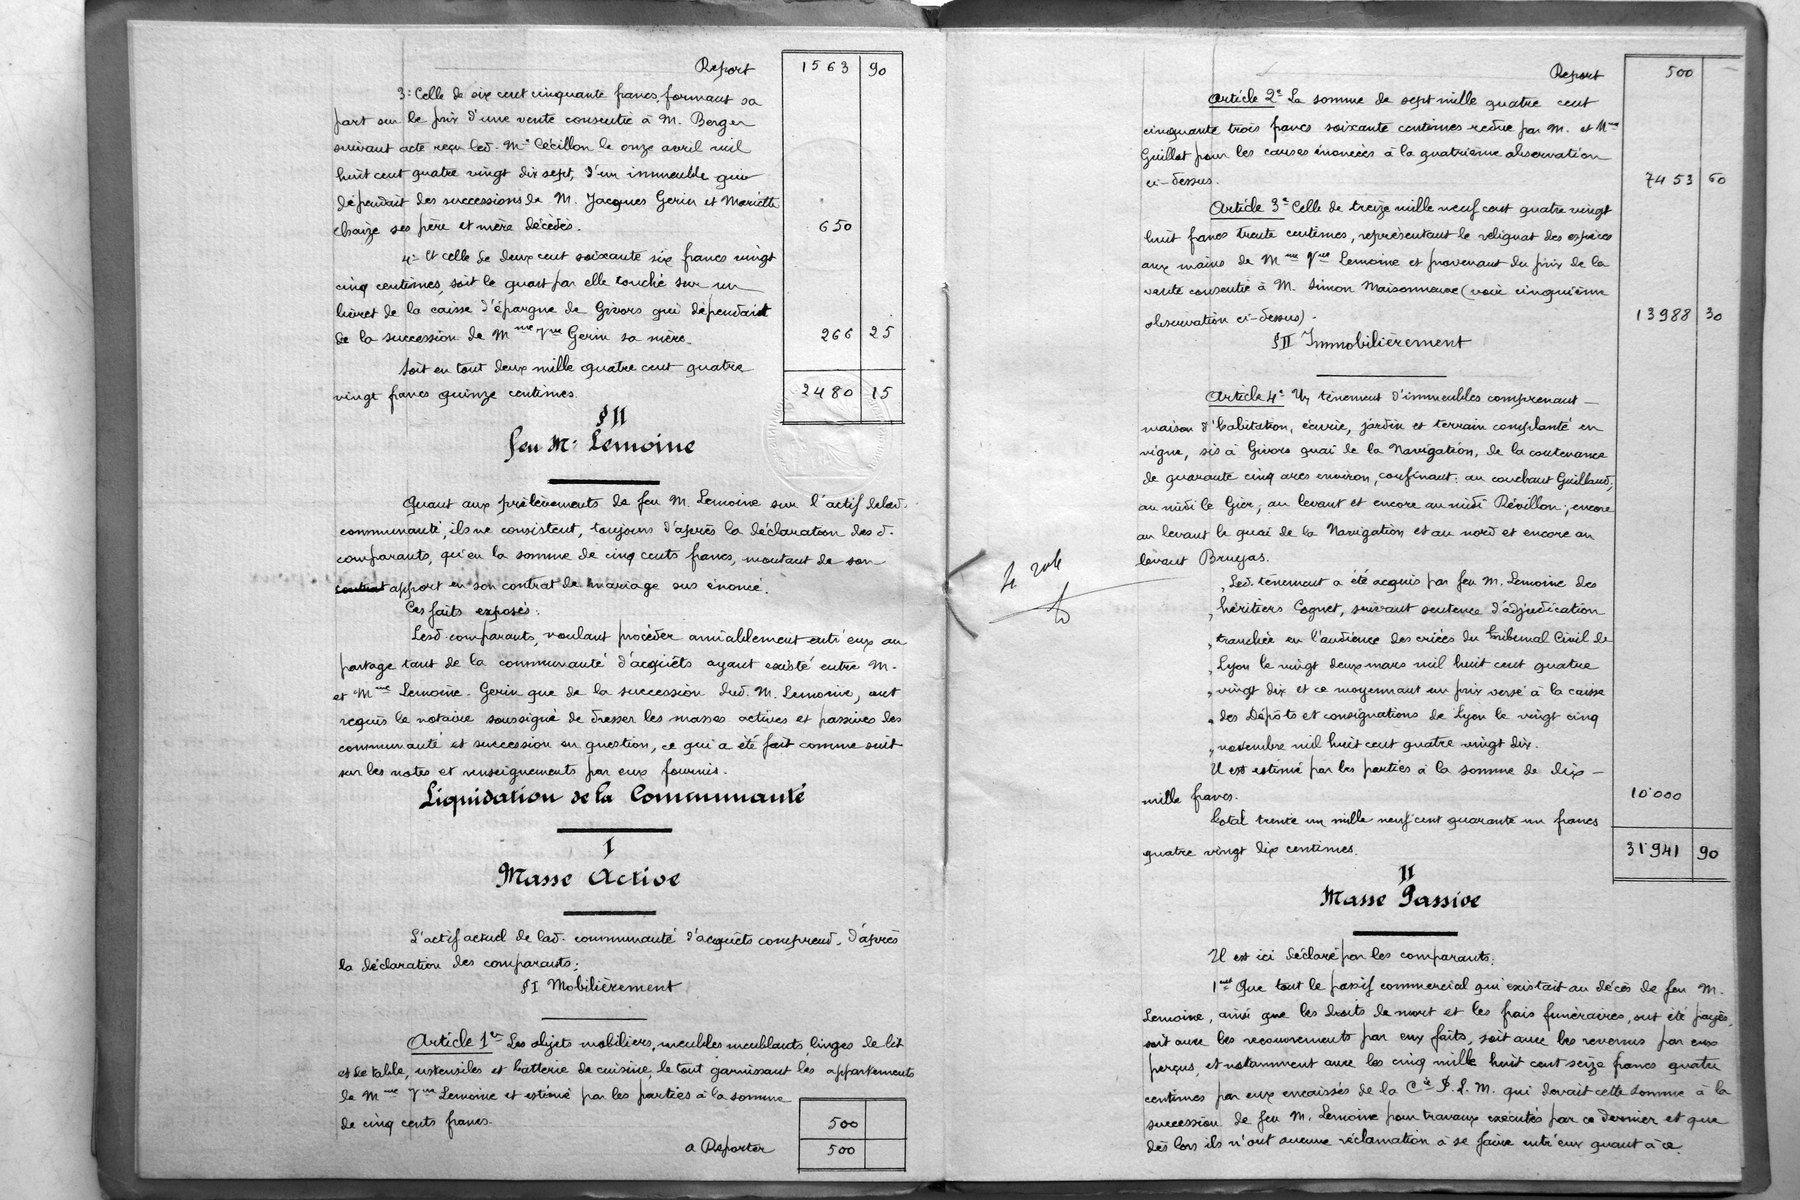 Report 1563 90
3: Celle de six cent cinquante francs, formant sa
part sur le prix d'une vente consentie à M. Berger
suivant acte reçu led. Me Cécillon le onze avril mil
huit cent quatre vingt dix sept, d'un immeuble qui
dépendait des successions de M. Jacques Gerin et Mariette
Chaize ses père et mère décédés. 650
4: Et celle de deux cent soixante six francs vingt
cinq centimes, soit le quart par elle touché sur un
livret de la caisse d'épargne de Givors qui dépendait
de la succession de Mme Vve Gerin sa mère. 266 25
Soit en tout deux mille quatre cent quatre
vingt francs quinze centimes. 2480 15
§ II
feu Mr Lemoine
Quant aux prélèvements de feu M. Lemoine sur l'actif de lad.
communauté, ils ne consistent, toujours d'après la déclaration des d.
comparants, qu'en la somme de cinq cents francs, montant de son
contrat apport en son contrat de mariage sus énoncé.
Ces faits exposés:
Lesd. comparants, voulant procéder amiablement entr'eux au
partage tant de la communauté d'acquêts ayant existé entre M.
et Mme Lemoine-Gerin que de la succession dud. M. Lemoine, ont
requis le notaire soussigné de dresser les masses actives et passives des
communauté et succession en question, ce qui a été fait comme suit
sur les notes et renseignements par eux fournis.
Liquidation de la Communauté
I
Masse Active
L'actif actuel de lad. communauté d'acquêts comprend, d'après
la déclaration des comparants:
§ I Mobilièrement
Article 1er Les objets mobiliers, meubles meublants, linges de lit
et de table, ustensiles et batterie de cuisine, le tout garnissant les appartements
de Mme Vve Lemoine et estimé par les parties à la somme
de cinq cents francs. 500
a Reporter 500
Report 500
Article 2e La somme de sept mille quatre cent
cinquante trois francs soixante centimes redue par M. et Mme
Guillot pour les causes énoncées à la quatrième observation
ci-dessus. 7453 60
Article 3e Celle de treize mille neuf cent quatre vingt
huit francs trente centimes, représentant le reliquat des espèces
aux mains de Mme Vve Lemoine et provenant du prix de la
vente consentie à M. Simon Maisonneuve (voir cinquième
observation ci-dessus). 13988 30
§ II Immobilièrement
Article 4e Un tènement d'immeubles comprenant
maison d'habitation, écurie, jardin et terrain complanté en
vigne, sis à Givors quai de la Navigation, de la contenance
de quarante cinq ares environ, confinant: au couchant Guillaud;
au midi le Gier, au levant et encore au midi Révillon; encore
au levant le quai de la Navigation et au nord et encore au
levant Bruyas.
„ Led. tènement a été acquis par feu M. Lemoine des
„ héritiers Cognet, suivant sentence d'adjudication
„ tranchée en l'audience des criées du tribunal Civil de
„ Lyon le vingt deux mars mil huit cent quatre
„ vingt dix et ce moyennant un prix versé à la caisse
„ des Dépôts et consignations de Lyon le vingt cinq
„ novembre mil huit cent quatre vingt dix.
Il est estimé par les parties à la somme de dix
mille francs. 10'000
Total trente un mille neuf cent quarante un francs
quatre vingt dix centimes. 31'941 90
II
Masse Passive
Il est ici déclaré par les comparants:
1ent Que tout le passif commercial qui existait au décès de feu M.
Lemoine, ainsi que les droits de mort et les frais funéraires, ont été payés,
soit avec les recouvrements par eux faits, soit avec les revenus par eux
perçus, et notamment avec les cinq mille huit cent seize francs quatre
centimes par eux encaissés de la Cie P.L.M. qui devait cette somme à la
succession de feu M. Lemoine pour travaux exécutés par ce dernier et que
dès lors ils n'ont aucune réclamation à se faire entr'eux quant à ce.